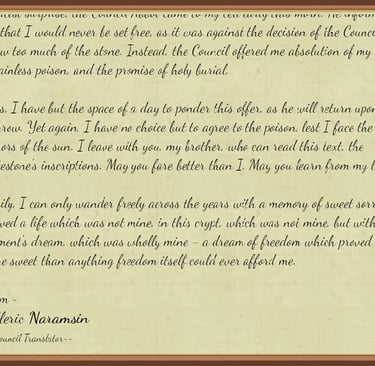 surprise, the Council Abbot came to my cell early this morn. He inform
that I would never be set free, as it was against the decision of the Counci
w too much of the stone. Instead, the Council offered me absolution of my
ainless poison, and the promise of holy burial.
s, I have but the space of a day to ponder this offer, as he will return upon
rrow. Yet again, I have no choice but to agree to the poison, lest I face the
ors of the sun. I leave with you, my brother, who can read this text, the
estone's inscriptions. May you fare better than I. May you learn from my l
ily, I can only wander freely across the years with a memory of sweet sorr
ved a life which was not mine, in this crypt, which was not mine, but with
ment's dream, which was wholly mine - a dream of freedom which proved
e sweet than anything freedom itself could ever afford me.
m ~
leric Naramsin
ouncil Translator~~